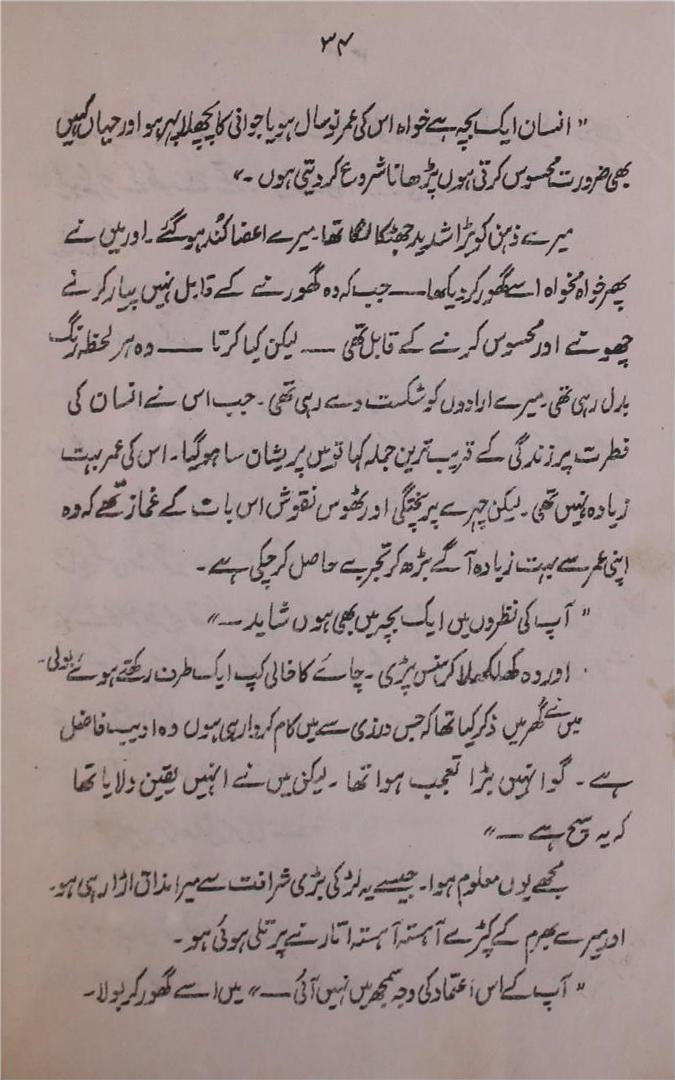 ۳۴
" انسان ایک بچہ ہے خواہ اس کی عمر نو سال ہو یا جوانی کا پچھلا پہر ہو اور جہاں کہیں
بھی ضرورت محسوس کرتی ہوں پڑھانا شروع کر دیتی ہوں ۔"
میرے ذہن کو بڑا شدید جھٹکا لگا تھا۔ میرے اعضا کُند ہو گئے ۔ اور میں نے
پھر خواہ مخواہ اسے گھور کر دیکھا — جب کہ وہ گھورنے کے قابل نہیں پیار کرنے
چھونے اور محسوس کرنے کے قابل تھی — لیکن کیا کرتا — وہ ہر لحظہ رنگ
بدل رہی تھی۔ میرے ارادوں کو شکست دے رہی تھی ۔ جب اس نے انسان کی
فطرت پر زندگی کے قریب ترین جملہ کہا تو میں پریشان سا ہو گیا ۔ اس کی عمر بہت
زیادہ نہیں تھی ۔ لیکن چہرے پر پختگی اور ٹھوس نقوش اس بات کے غماز تھے کہ وہ
اپنی عمر سے بہت زیادہ آگے بڑھ کر تجربے حاصل کر چکی ہے ۔
" آپ کی نظروں میں ایک بچہ میں بھی ہوں شاید —"
اور وہ کھلکھلا کر ہنس پڑی ۔ چائے کا خالی کپ ایک طرف رکھتے ہوئے بولی۔
میں نے گھر میں ذکر کیا تھا کہ جس درزی سے میں کام کروا رہی ہوں وہ ادیب فاضل
ہے ۔ گو انہیں بڑا تعجب ہوا تھا ۔ لیکن میں نے انہیں یقین دلایا تھا
کہ یہ سچ ہے —"
مجھے یوں معلوم ہوا۔ جیسے یہ لڑکی بڑی شرافت سے میرا مذاق اڑا رہی ہو۔
اور میرے بھرم کے کپڑے آہستہ آہستہ اتارنے پر تلی ہوئی ہو ۔
" آپ کے اس اعتماد کی وجہ سمجھ میں نہیں آئی —" میں اسے گھور کر بولا۔